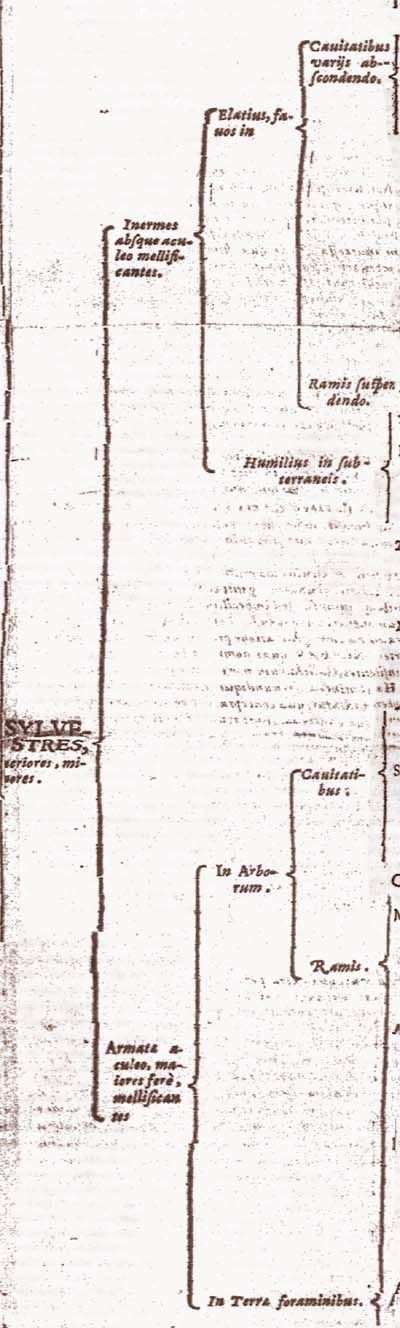 Cauitatibus
varijs ab-
ſcondendo.
Elatius, fa-
uos in
Inermes
abſque acu-
leo mellifi-
cantes.
Ramis ſuſpen
dendo.
Humilius in ſub-
terraneis.
SYLVE-
STRES,
teriores, mi-
tiores.
Cauitati-
bus.
In Arbo-
rum.
Ramis.
Armatæ a-
culeo, ma-
iores ferè,
mellifican
tes
In Terræ foraminibus.